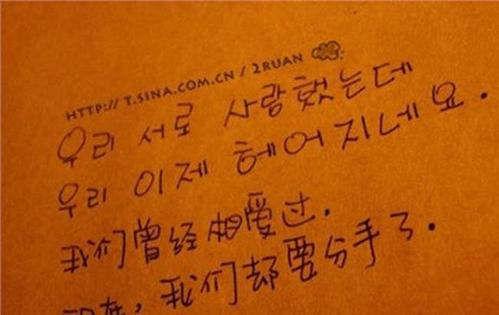 HTTP://T.SINA.COM.CN/2RUAN
우리 서로 사랑했는데
우리 이제 헤어지네요.
我们曾经相爱过.
现在,我们却要分手了.